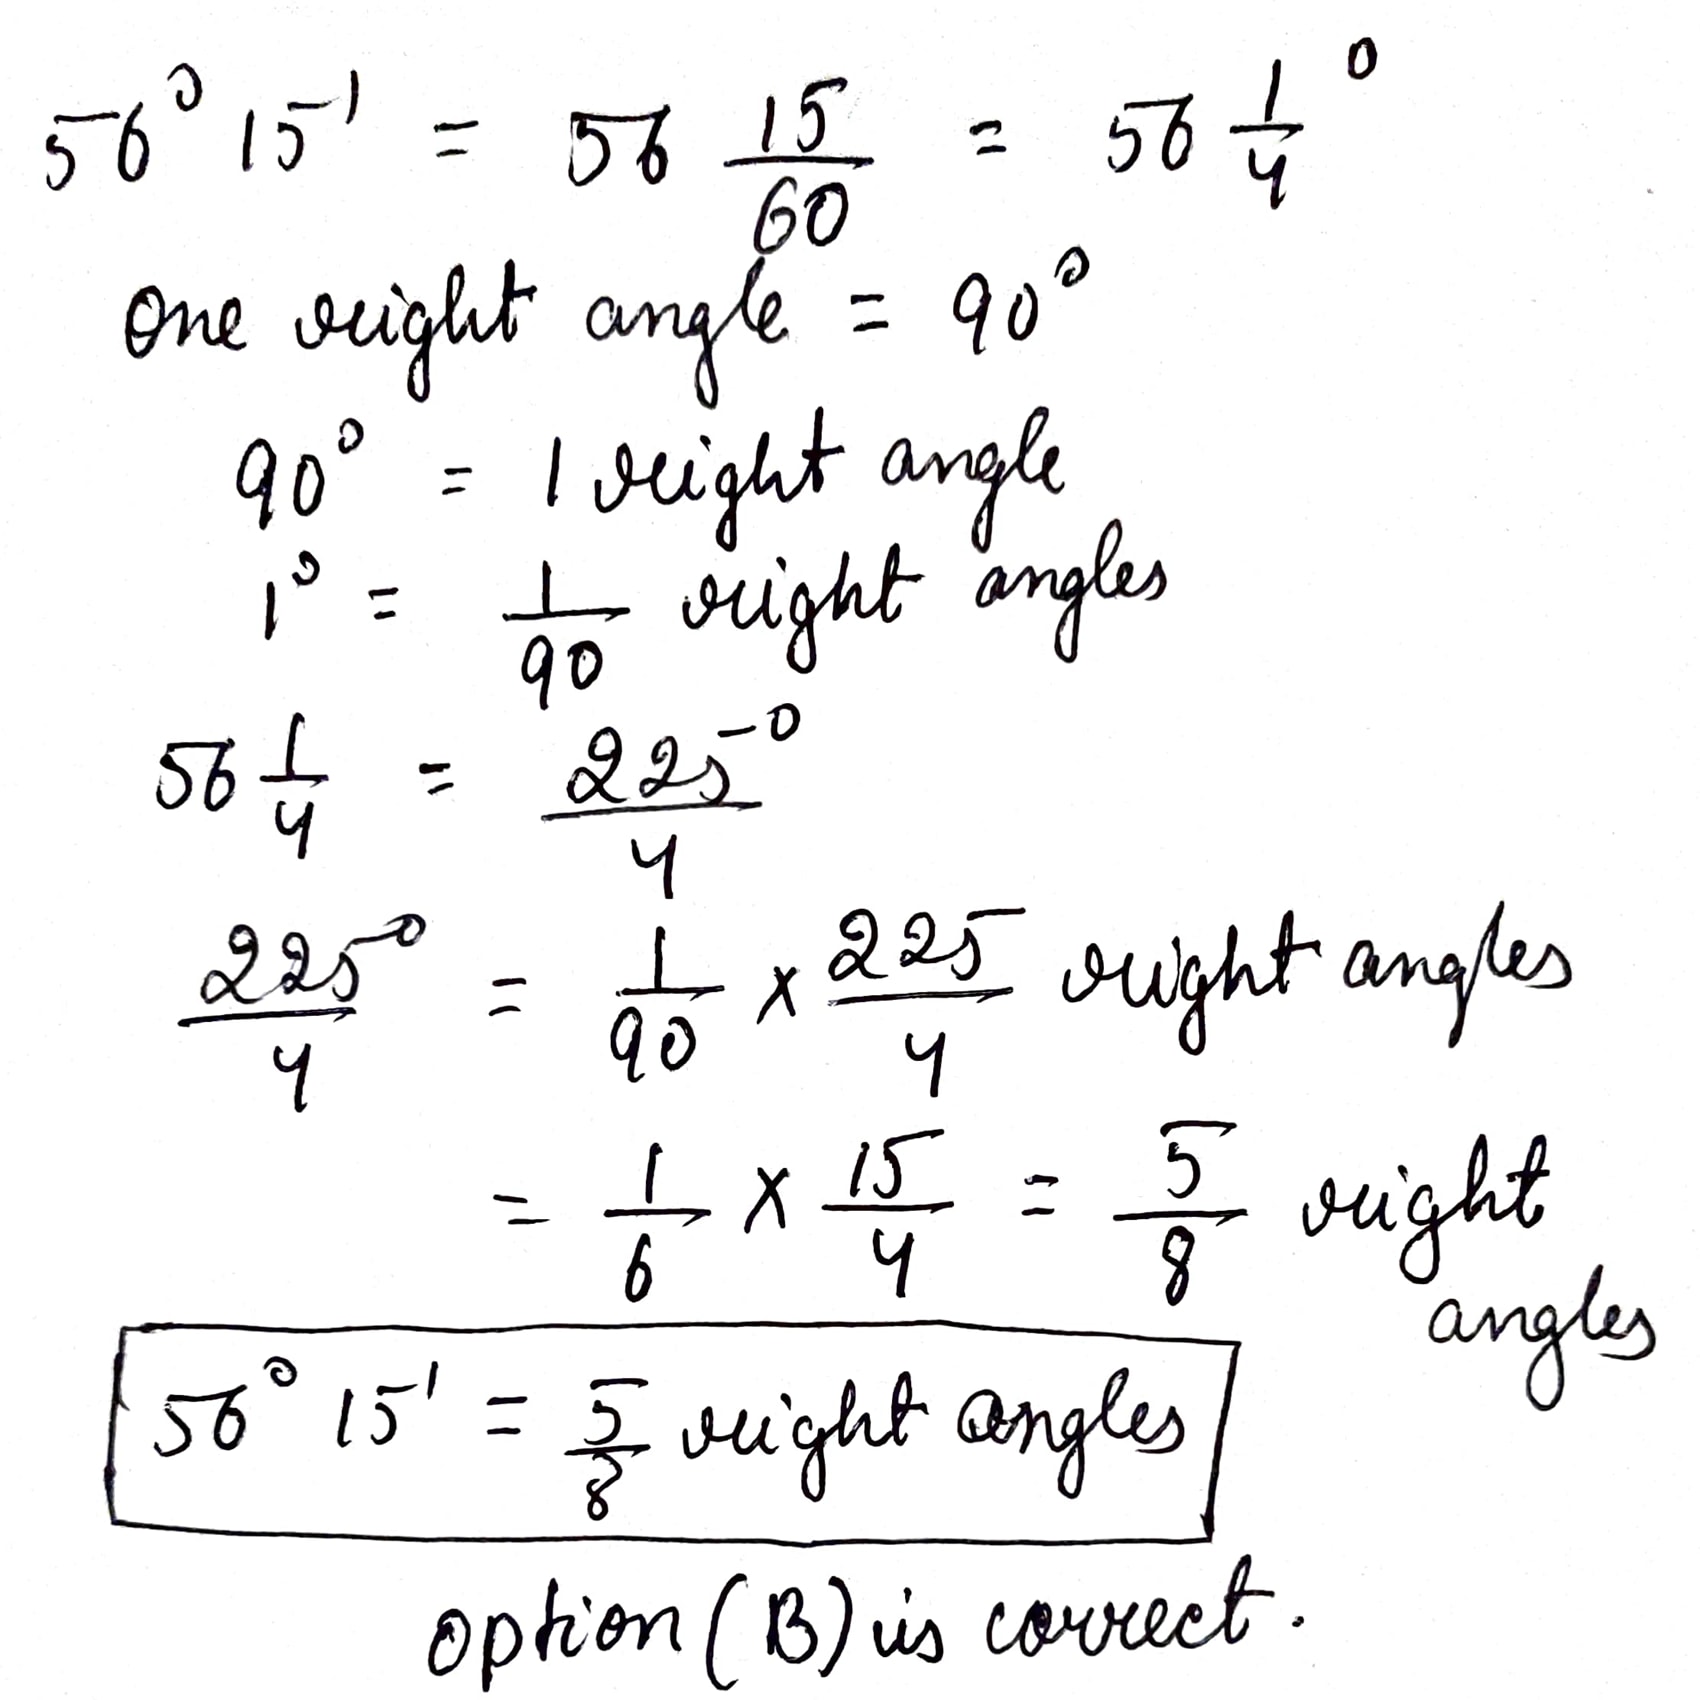 56° 15' = 56 15/60 = 56 1/4 °
One right angle = 90°
90° = 1 right angle
1° = 1/90 right angles
56 1/4 = 225°/4
225°/4 = 1/90 × 225/4 right angles
= 1/6 × 15/4 = 5/8 right
angles
56° 15' = 5/8 right angles
option (B) is correct.